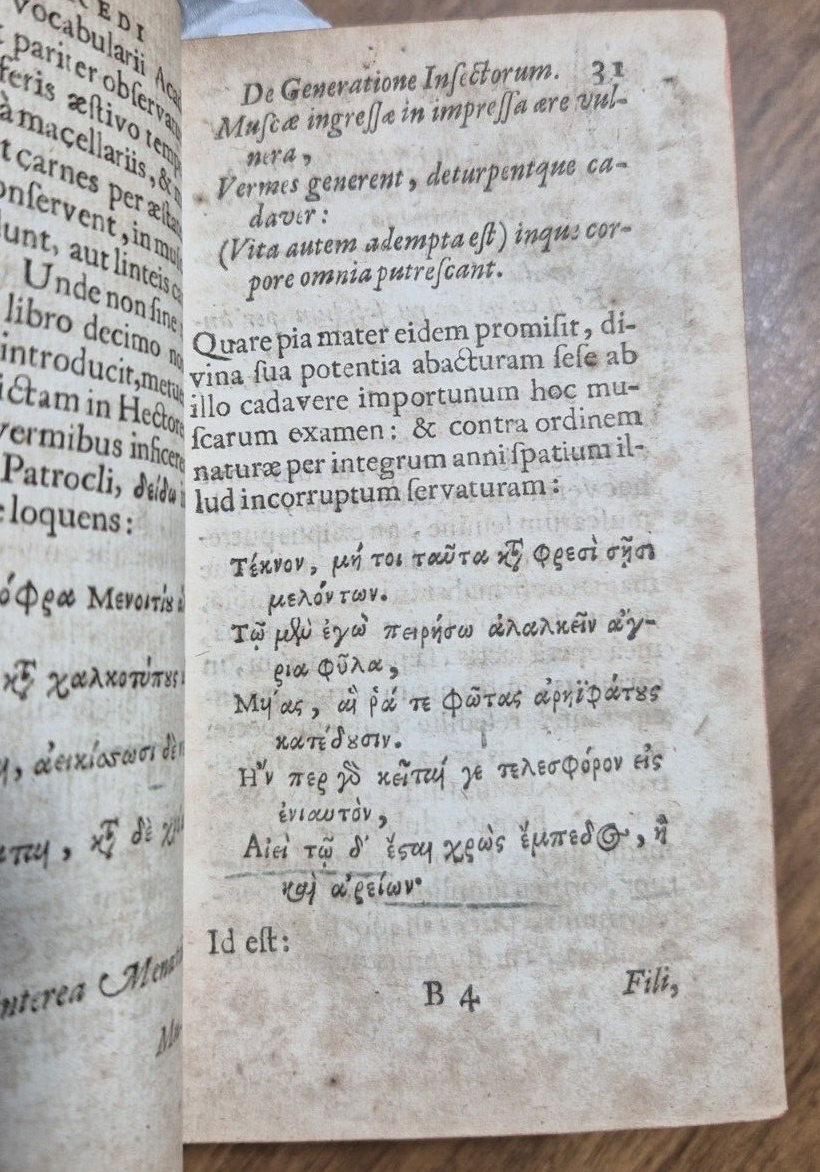 REDI
vocabularii Acad
pariter observa
feris æstivo temp
à maçellariis, &
t carnes per æsta
onservent, in mus
lunt, aut linteis
Unde non sine
libro decimo no
introducit, metue
ictam in Hectore
vermibus inficere
Patrocli, δείδω
loquens:
όφρα Μενοιτίȣ
κτ̀ χαλκοτύπȣς
, ἀεικίσσωσι δὲ
, κτ̀ δὲ
nterea Menœ
Mu-
De Generatione Insectorum. 31
Muscæ ingressæ in impressa ære vul-
nera,
Vermes generent, deturpentque ca-
daver:
(Vita autem adempta est) inque cor-
pore omnia putrescant.
Quare pia mater eidem promisit, di-
vina sua potentia abacturam sese ab
illo cadavere importunum hoc mu-
scarum examen: & contra ordinem
naturæ per integrum anni spatium il-
lud incorruptum servaturam:
Τέκνον, μή τοι ταῦτα κτ̀ φρεσὶ σῇσι
μελόντων.
Τῷ μὲν ἐγὼ πειρήσω ἀλαλκεῖν ἄγ-
ρια φῦλα,
Μύας, αἵ ῥά τε φῶτας ἀρηϊφάτȣς
κατέδȣσιν.
Ἤν περ γὰρ κεῖται γε τελεσφόρον εἰς
ἐνιαυτὸν,
Αἰεὶ τῷ δ' ἔσται χρὼς ἔμπεδος, ἢ
καὶ ἀρείων·
Id est:
B 4 Fili,